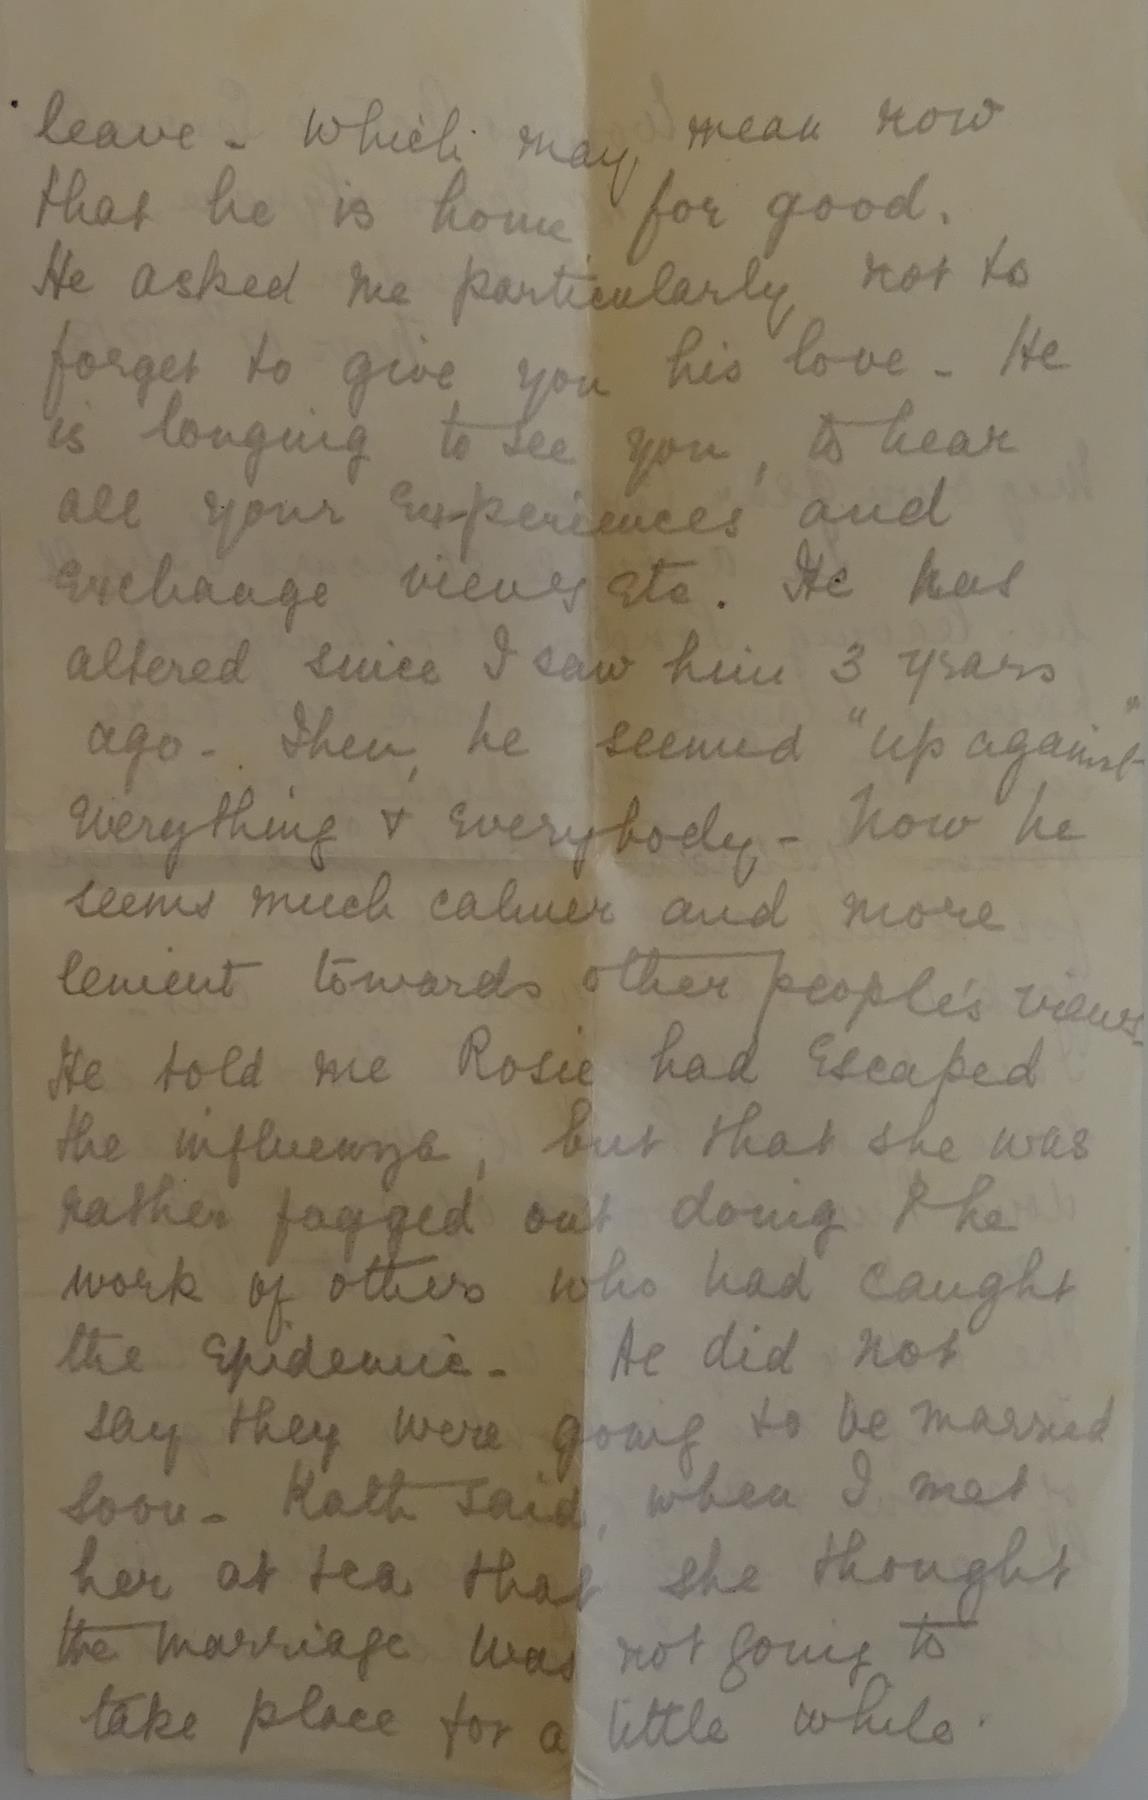 leave - which may mean now
that he is home for good.
He asked me particularly not to
forget to give you his love - He
is longing to see you, to hear
all your Experiences and
Exchange views Etc. He has
altered since I saw him 3 years
ago - Then, he seemed "up against"
Everything & Everybody - Now he
seems much calmer and more
lenient towards other people's views -
He told me Rosie had Escaped
the influenza, but that she was
rather fagged out doing the
work of others who had caught
the Epidemic - He did not
say they were going to be married
soon - Kath said, when I met
her at tea that she thought
the marriage was not going to
take place for a little while.